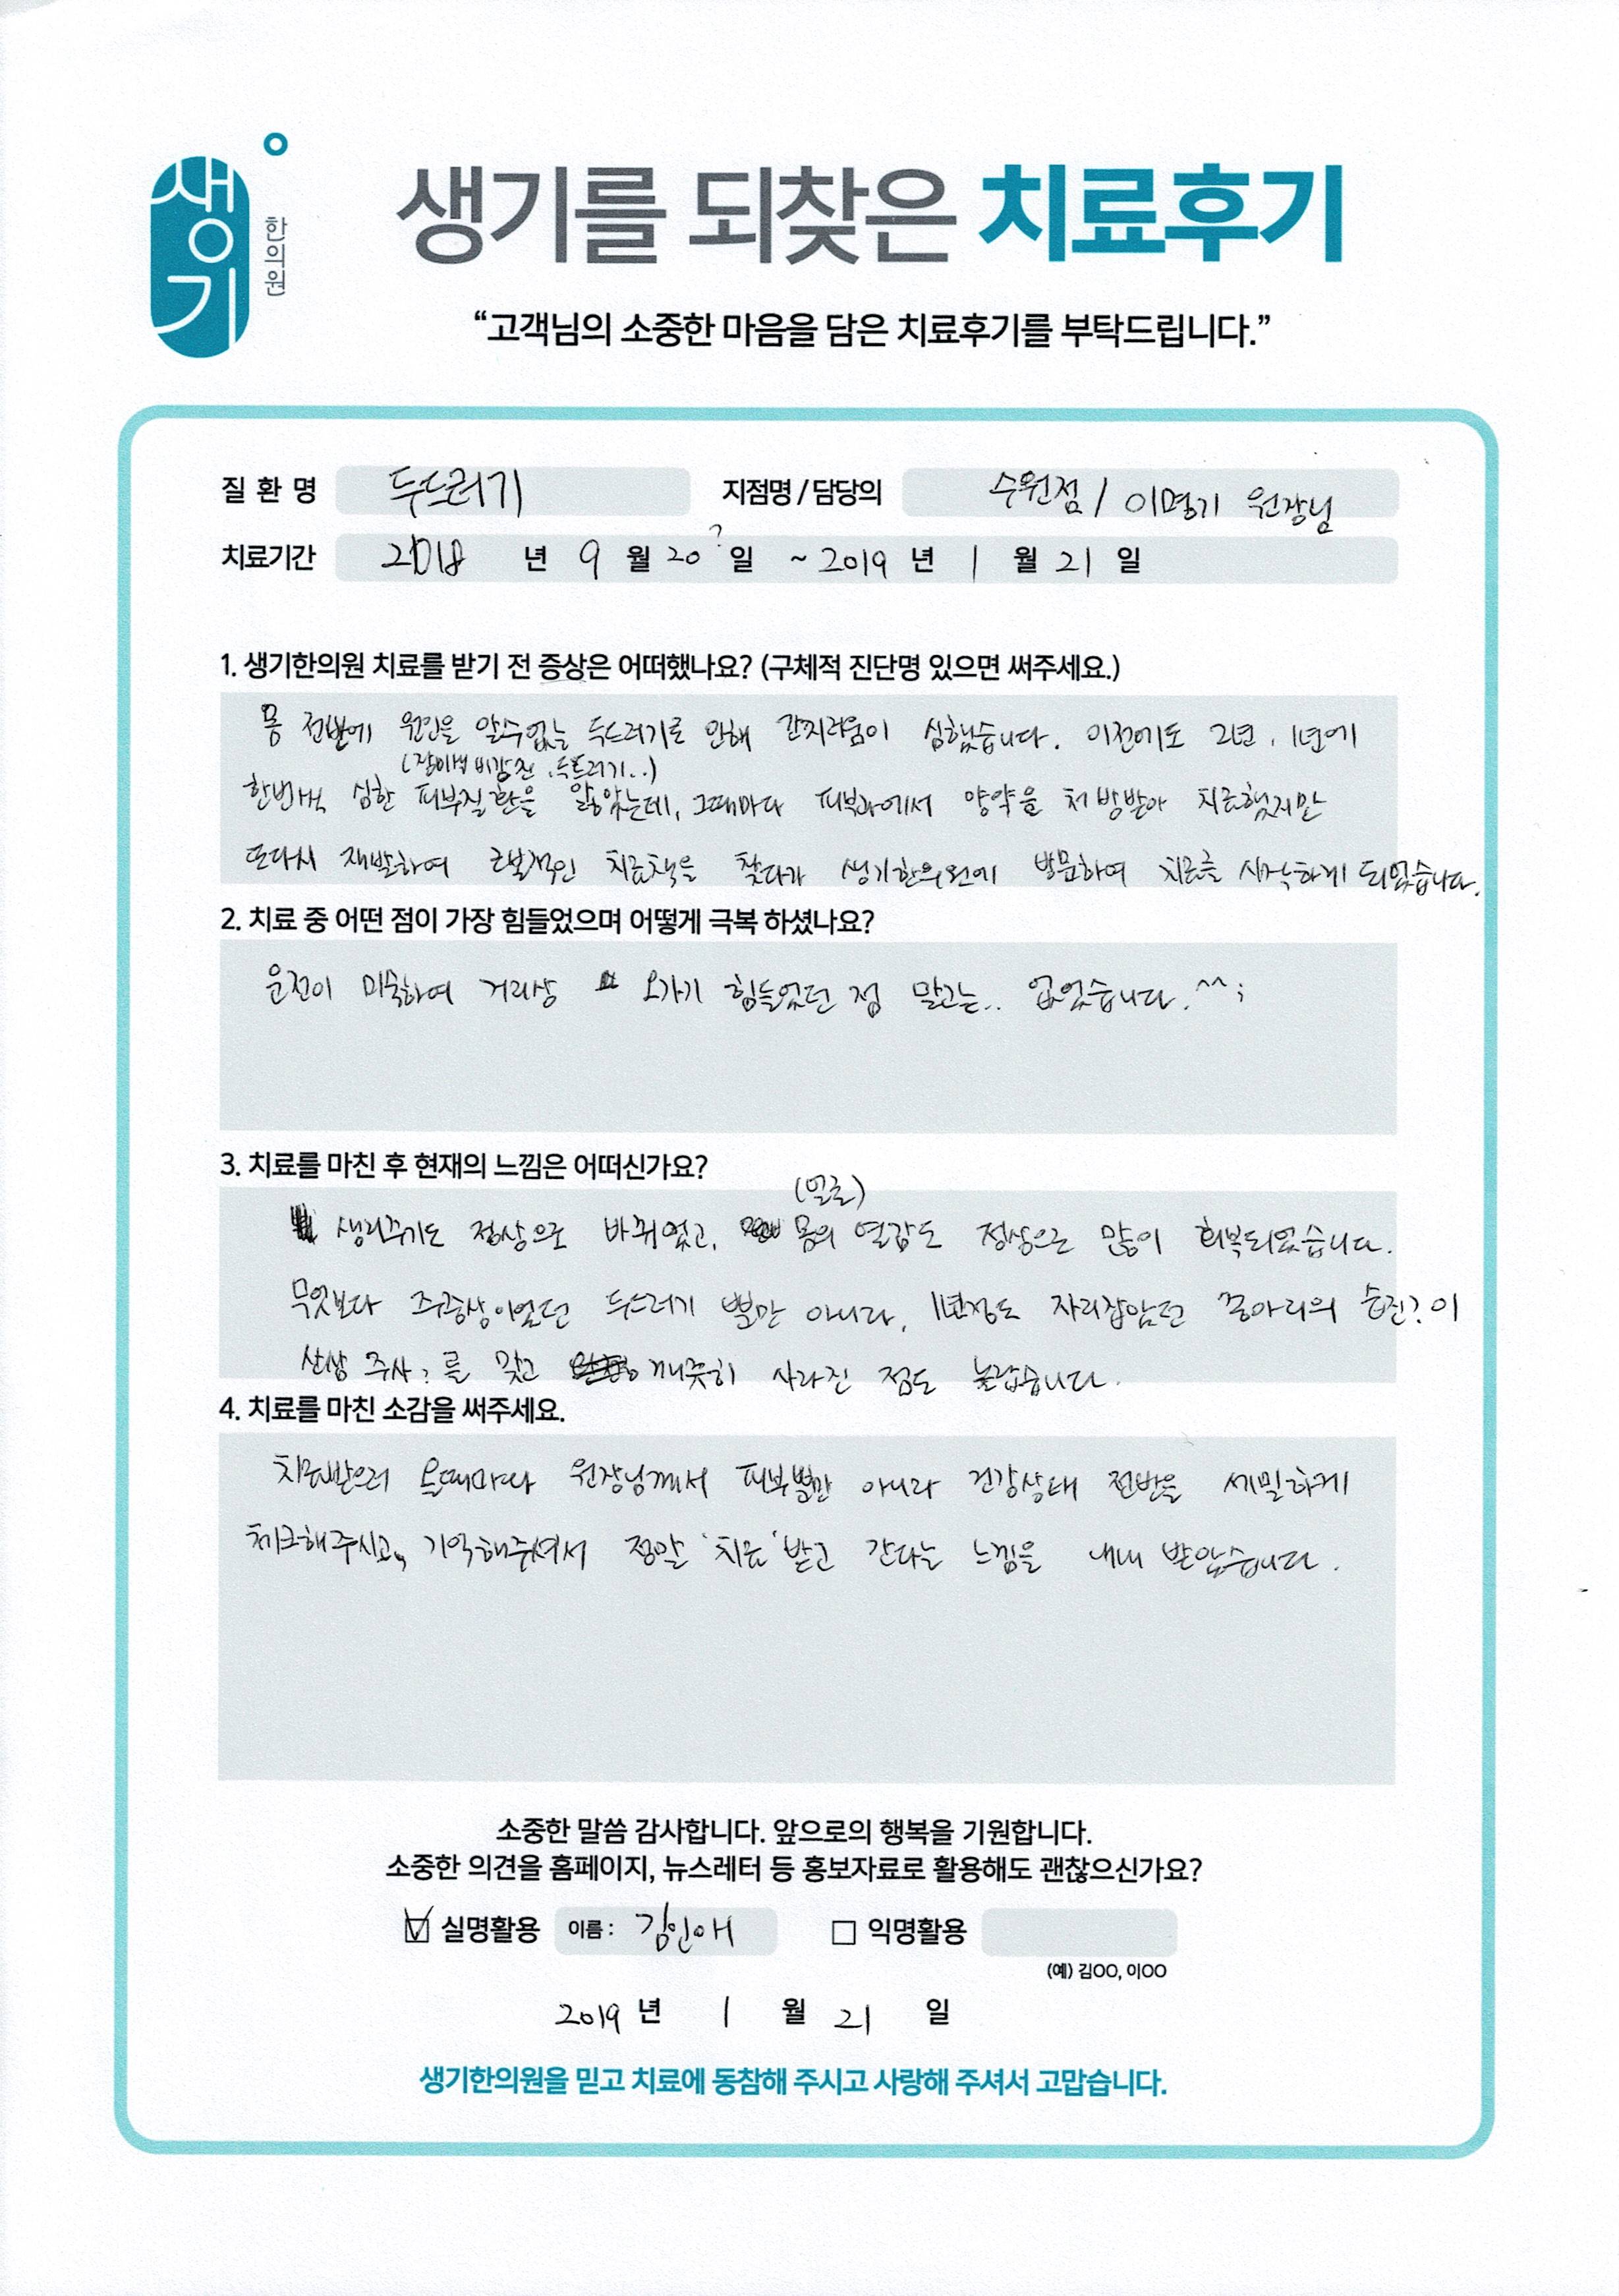 생기
한의원
생기를 되찾은 치료후기
“고객님의 소중한 마음을 담은 치료후기를 부탁드립니다.”
질 환 명 두드러기 지점명 / 담당의 수원점 / 이명기 원장님
치료기간 2018 년 9 월 20 ? 일 ~ 2019 년 1 월 21 일
1. 생기한의원 치료를 받기 전 증상은 어떠했나요? (구체적 진단명 있으면 써주세요.)
몸 전반에 원인을 알수없는 두드러기로 인해 간지러움이 심했습니다. 이전에도 2년, 1년에
(장미색 비강진, 두드러기..)
한번씩 심한 피부질환을 앓았는데, 그때마다 피부과에서 양약을 처방받아 치료했지만
또다시 재발하여 근본적인 치료책을 찾다가 생기한의원에 방문하여 치료를 시작하게 되었습니다.
2. 치료 중 어떤 점이 가장 힘들었으며 어떻게 극복 하셨나요?
운전이 미숙하여 거리상 오가기 힘들었던 점 말고는.. 없었습니다.^^;
3. 치료를 마친 후 현재의 느낌은 어떠신가요?
(얼굴)
생리주기도 정상으로 바뀌었고, 몸의 열감도 정상으로 많이 회복되었습니다.
무엇보다 주증상이었던 두드러기 뿐만 아니라, 1년정도 자리잡았던 종아리의 습진?이
산삼 주사?를 맞고 깨끗히 사라진 점도 놀랍습니다.
4. 치료를 마친 소감을 써주세요.
치료받으러 올때마다 원장님께서 피부뿐만 아니라 건강상태 전반을 세밀하게
체크해주시고, 기억해주셔서 정말 '치료' 받고 간다는 느낌을 내내 받았습니다.
소중한 말씀 감사합니다. 앞으로의 행복을 기원합니다.
소중한 의견을 홈페이지, 뉴스레터 등 홍보자료로 활용해도 괜찮으신가요?
실명활용 이름 : 김인애 익명활용
(예) 김OO, 이OO
2019 년 1 월 21 일
생기한의원을 믿고 치료에 동참해 주시고 사랑해 주셔서 고맙습니다.